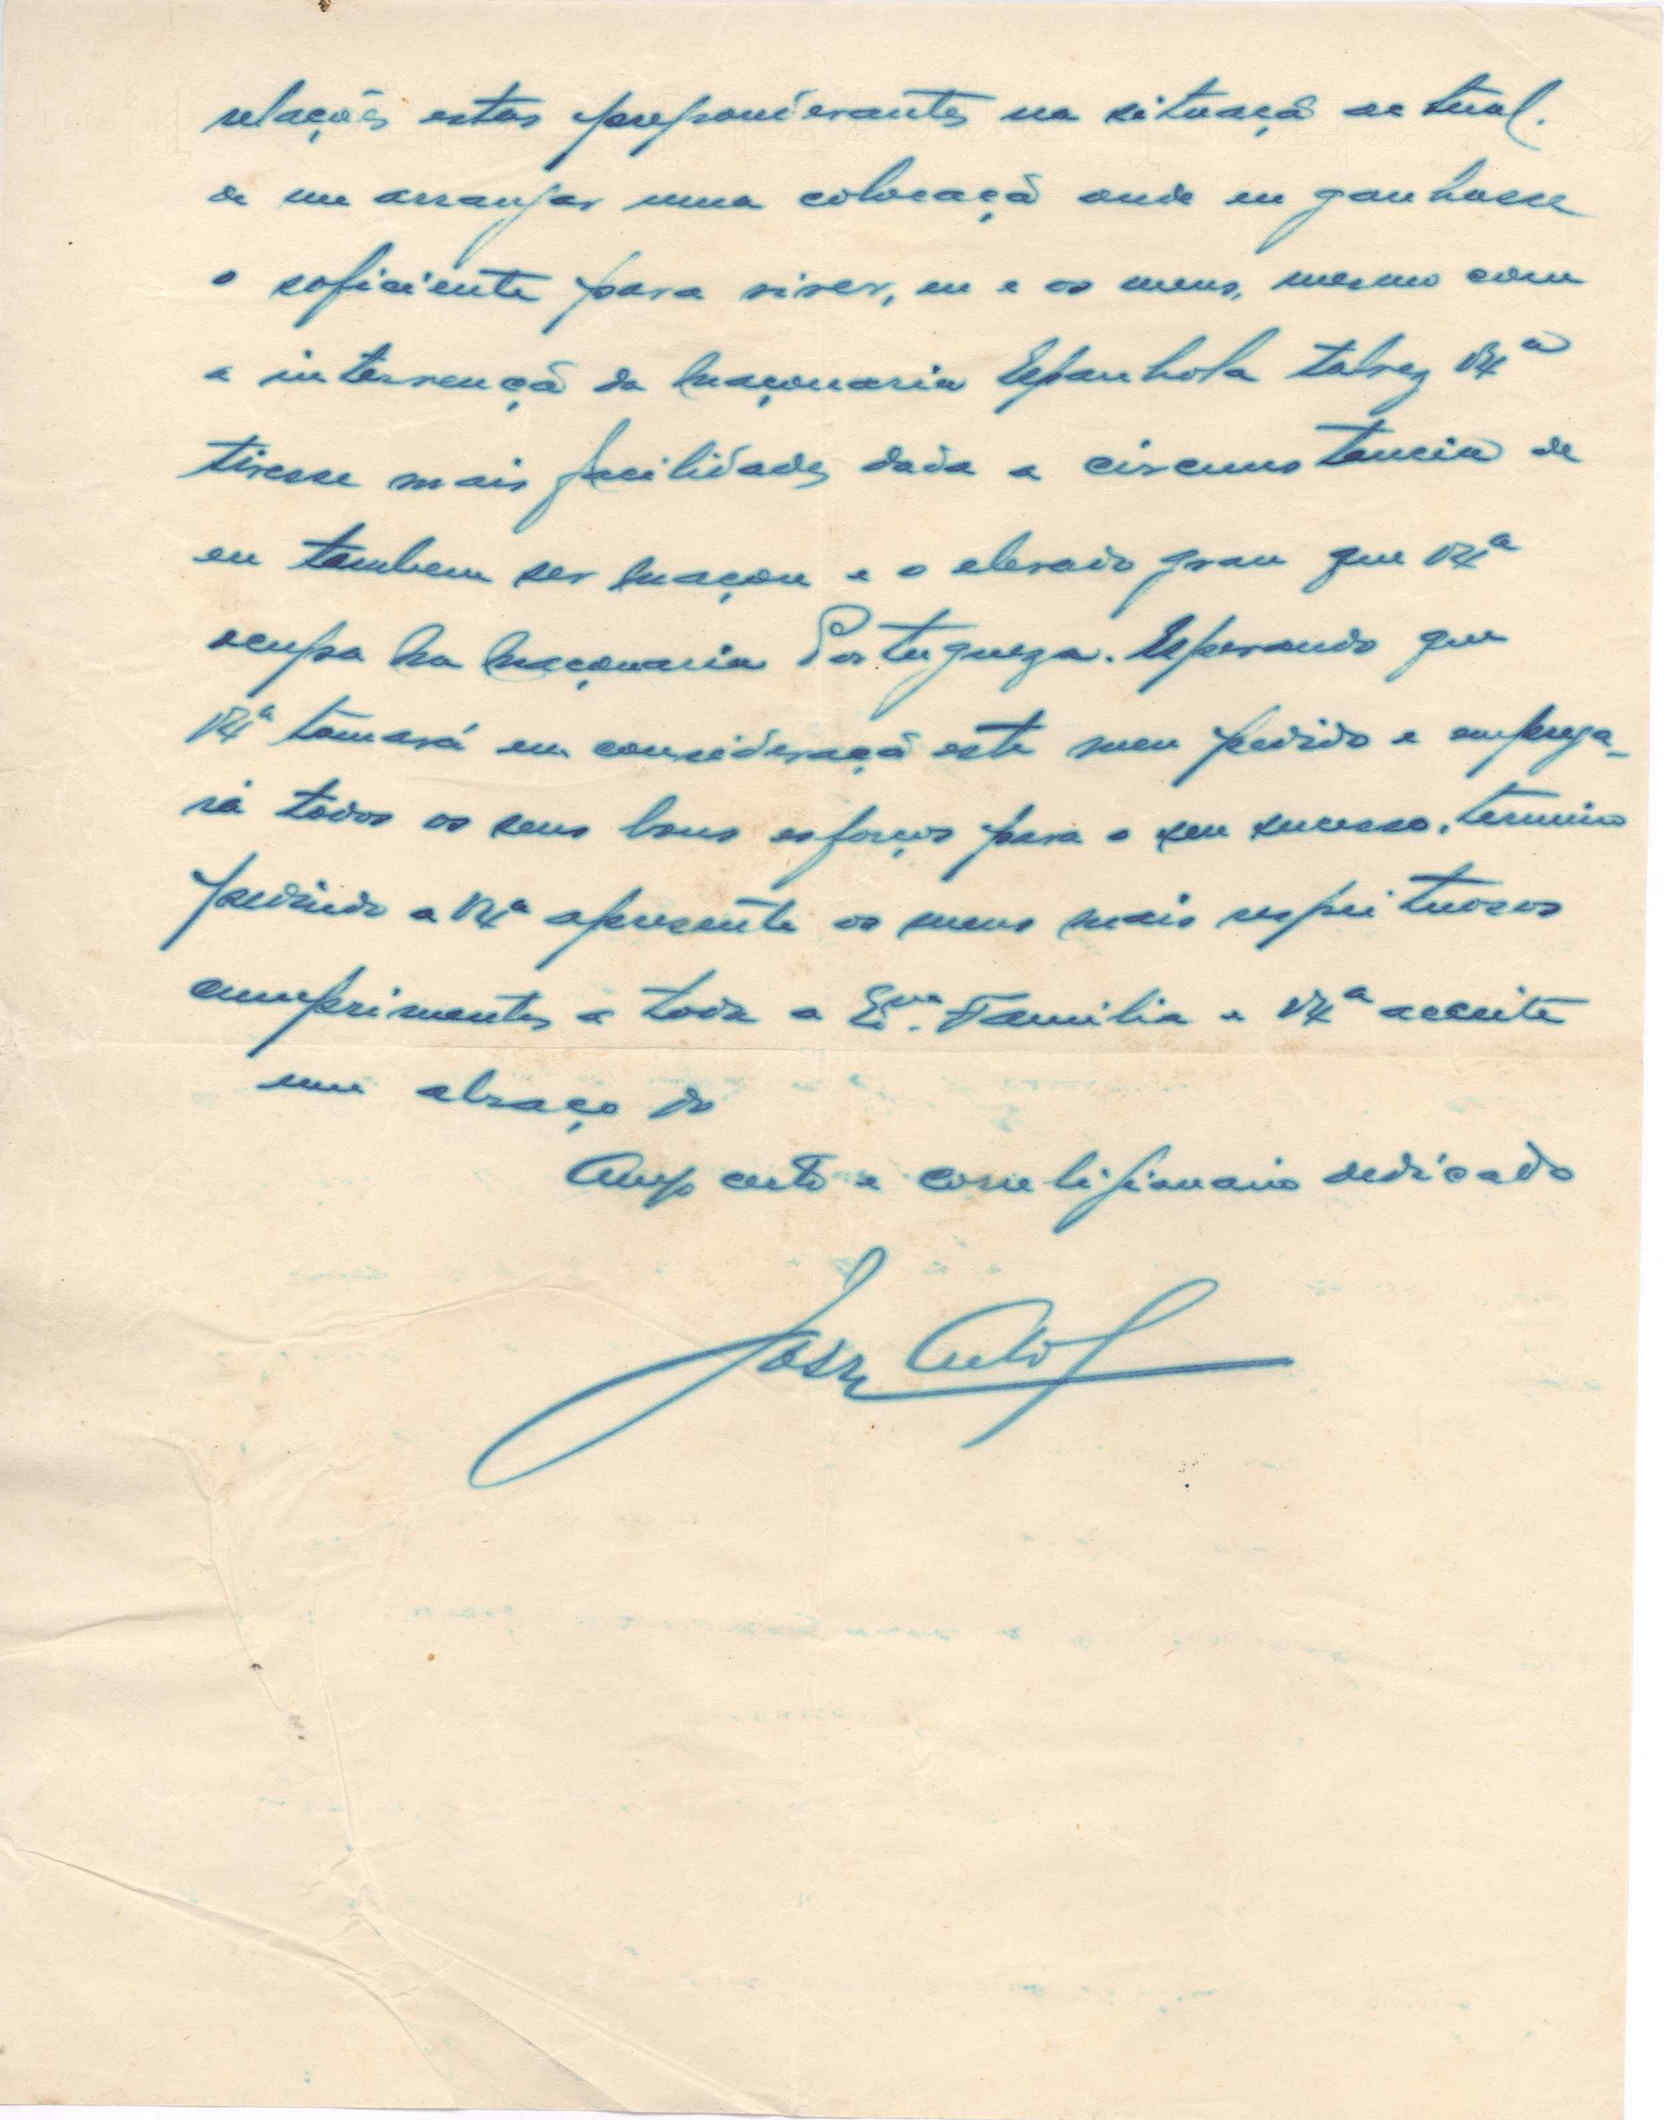 relações estas preponderantes na situaçã actual.
de me arranjar uma colocaçã onde eu ganhasse
o soficiente para viver, eu e os meus, mesmo com
a intervençã da Maçonaria Espanhola talvez V. Exª
tivesse mais facilidades dada a circumstancia de
eu tambem ser Maçon e o elevado grau que V. Exª
ocupa na Maçonaria Portugueza. Esperando que
V. Exª tomará em consideraçã este meu pedido e emprega-
rá todos os seus bons esforços para o seu sucesso, termino
pedindo a V. Exª apresente os meus mais respeituosos
cumprimentos a toda a Exma. Familia e V. Exª acceite
um abraço do
Amgo certo e correligionario dedicado
José